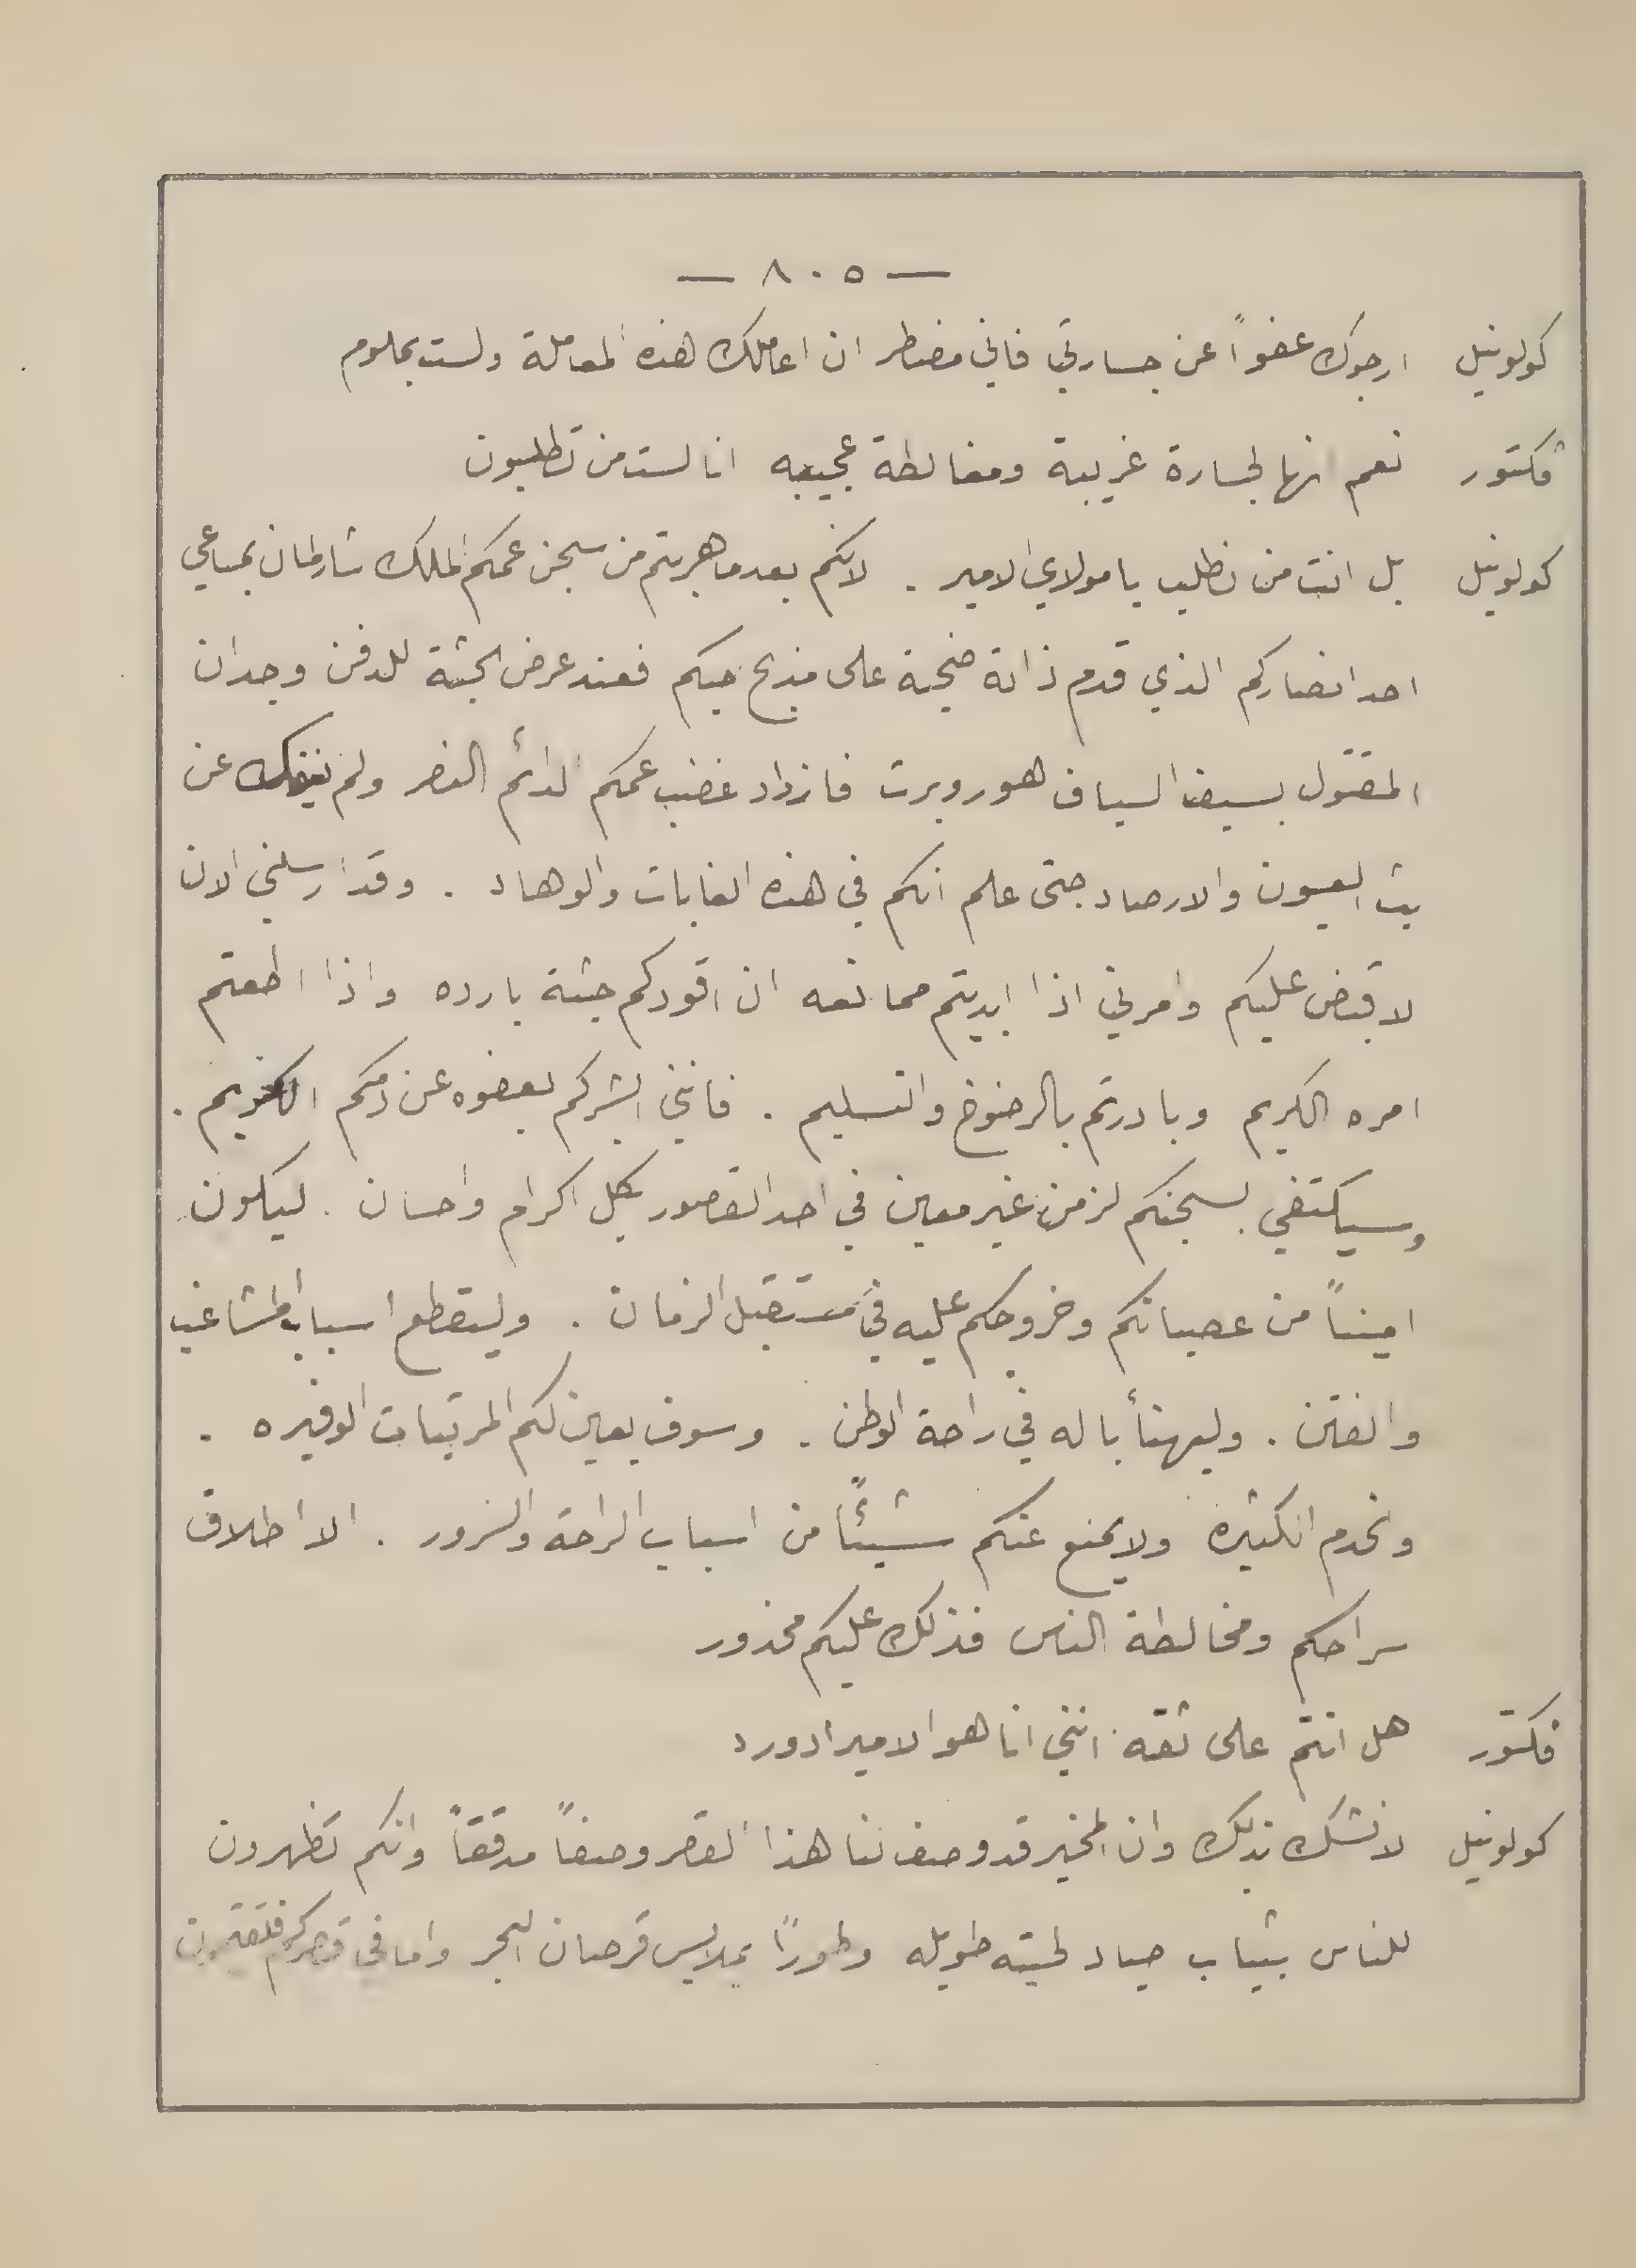 — ٨٠٥ —
كولونيل ارجوك عفواً عن جسارتي فاني مضطر ان اعاملك هذه المعاملة ولست بملوم
ڤكتور نعم انها لجسارة غريبة ومغالطة عجيبه انا لست من تطلبون
كولونيل بل انت من نطلب يا مولاي الامير . لانكم بعدما هربتم من سجن عمكم الملك شارلمان بمساعي
احد انصاركم الذي قدم ذاته ضحية على مذبح حبكم فعند عرض الجثة للدفن وجد ان
المقتول بسيف السياف هو روبرت فازداد غضب عمكم الدائم النصر ولم ينفك عن
بث العيون والارصاد حتى علم انكم في هذه الغابات والوهاد . وقد ارسلني الان
لاقبض عليكم وامرني اذا ابديتم ممانعه ان اقودكم جثة بارده واذا اطعتم
امره الكريم وبادرتم بالرضوخ والتسليم . فانني ابشركم بعفوه عن دمكم الكريم .
وسيكتفي بسجنكم لزمن غير معين في احد القصور بكل اكرام واحسان . ليكون
اميناً من عصيانكم وخروجكم عليه في مستقبل الزمان . وليقطع اسباب المشاغب
والفتن . وليهنأ باله في راحة الوطن . وسوف يعين لكم المرتبات الوفيره .
والخدم الكثيره ولا يمنع عنكم شيئاً من اسباب الراحة والسرور . الا اطلاق
سراحكم ومخالطة الناس فذلك عليكم محذور
ڤكتور هل انتم على ثقة انني انا هو الامير ادورد
كولونيل لا نشك بذلك وان المخبر قد وصف لنا هذا القصر وصفاً مدققاً وانكم تظهرون
للناس بثياب صياد لحيته طويله وطوراً بملابس قرصان البحر واما في قصركم